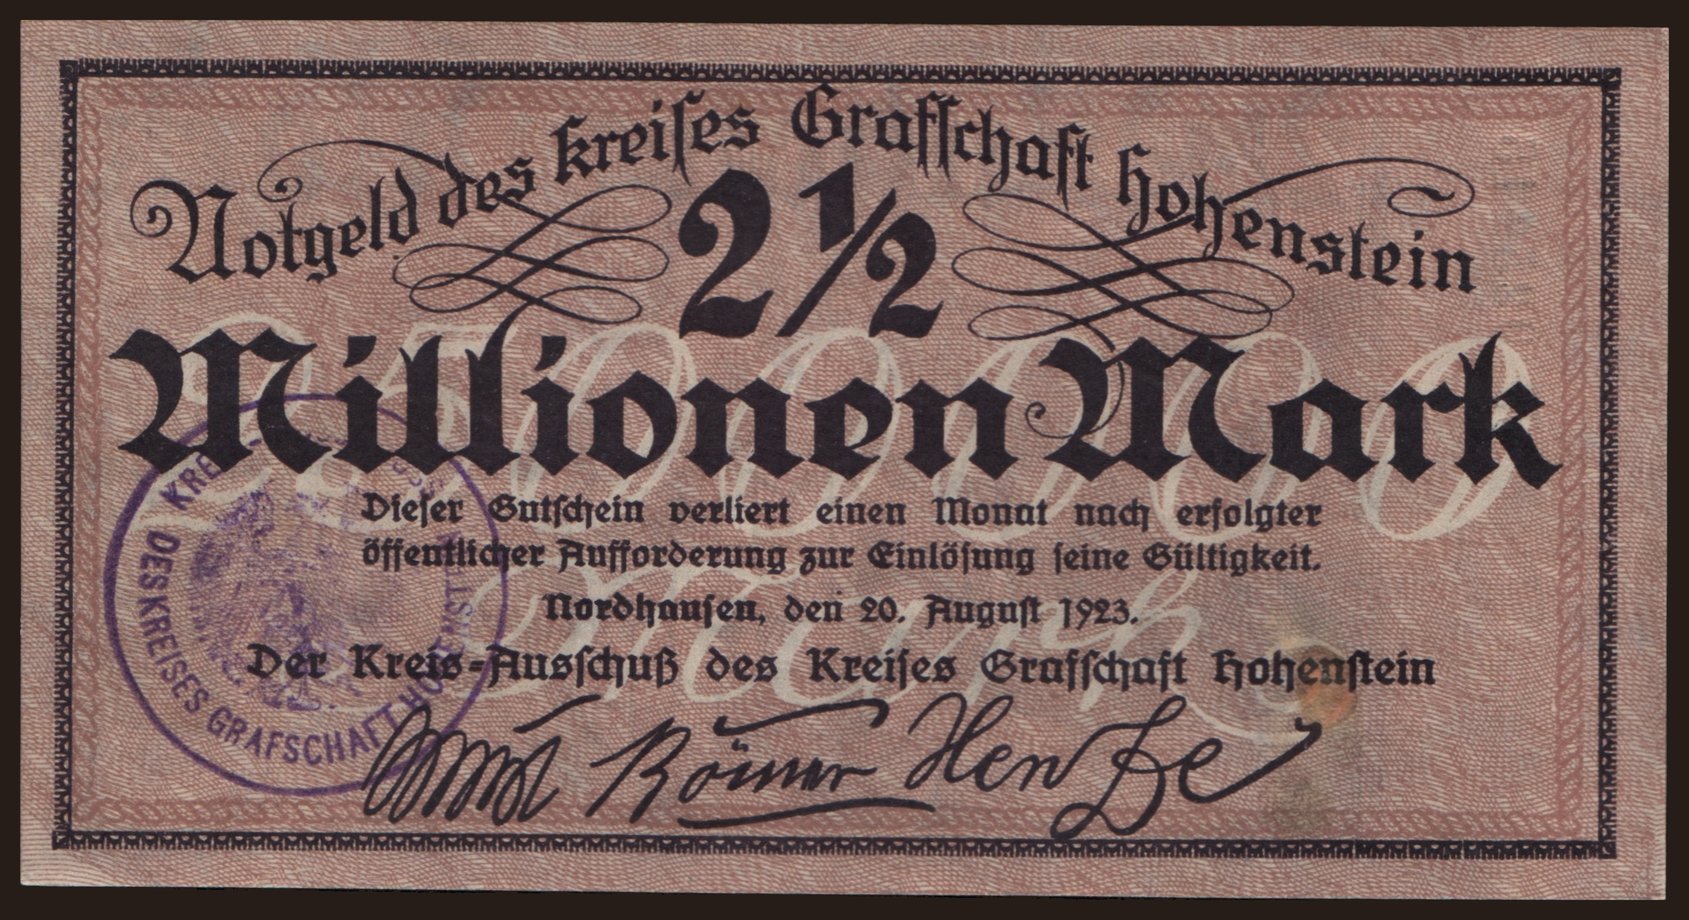 Notgeld des Kreises Grafschaft Hohenstein
2 1/2
Millionen Mark
2500000
Mark
Dieser Gutschein verliert einen Monat nach erfolgter
öffentlicher Aufforderung zur Einlösung seine Gültigkeit.
Nordhausen, den 20. August 1923.
Der Kreis-Ausschuß des Kreises Grafschaft Hohenstein
DES KREISES GRAFSCHAFT HOHENSTEIN
Römer Hentze